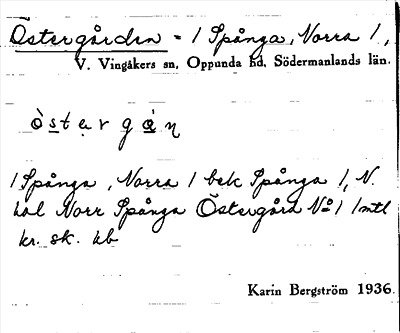 Östergården - 1 Spånga, Norra 1,
V. Vingåkers sn, Oppunda hd, Södermanlands län.
ö̀stẹrgạ̊̀ŋ
1 Spånga, Norra 1 bek Spånga 1, N.
hal Norr Spånga Östergård No 1 1 mtl
kr. sk. hb
Karin Bergström 1936.